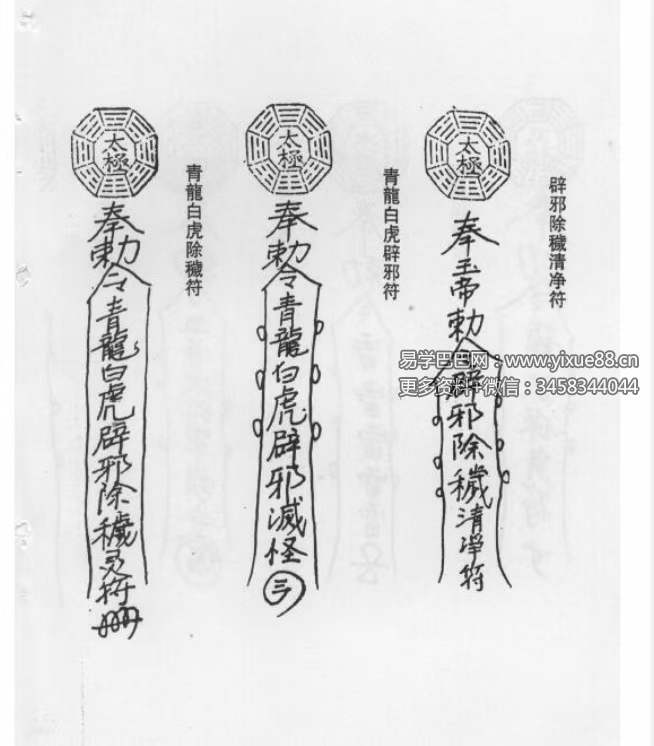 辟邪除穢清净符
太極
奉玉帝勅令辟邪除穢清净符
青龍白虎辟邪符
太極
奉勅令青龍白虎辟邪滅怪
青龍白虎除穢符
太極
奉勅令青龍白虎辟邪除穢灵符
易学巴巴网：www.yixue88.cn
更多资料+微信：3458344044